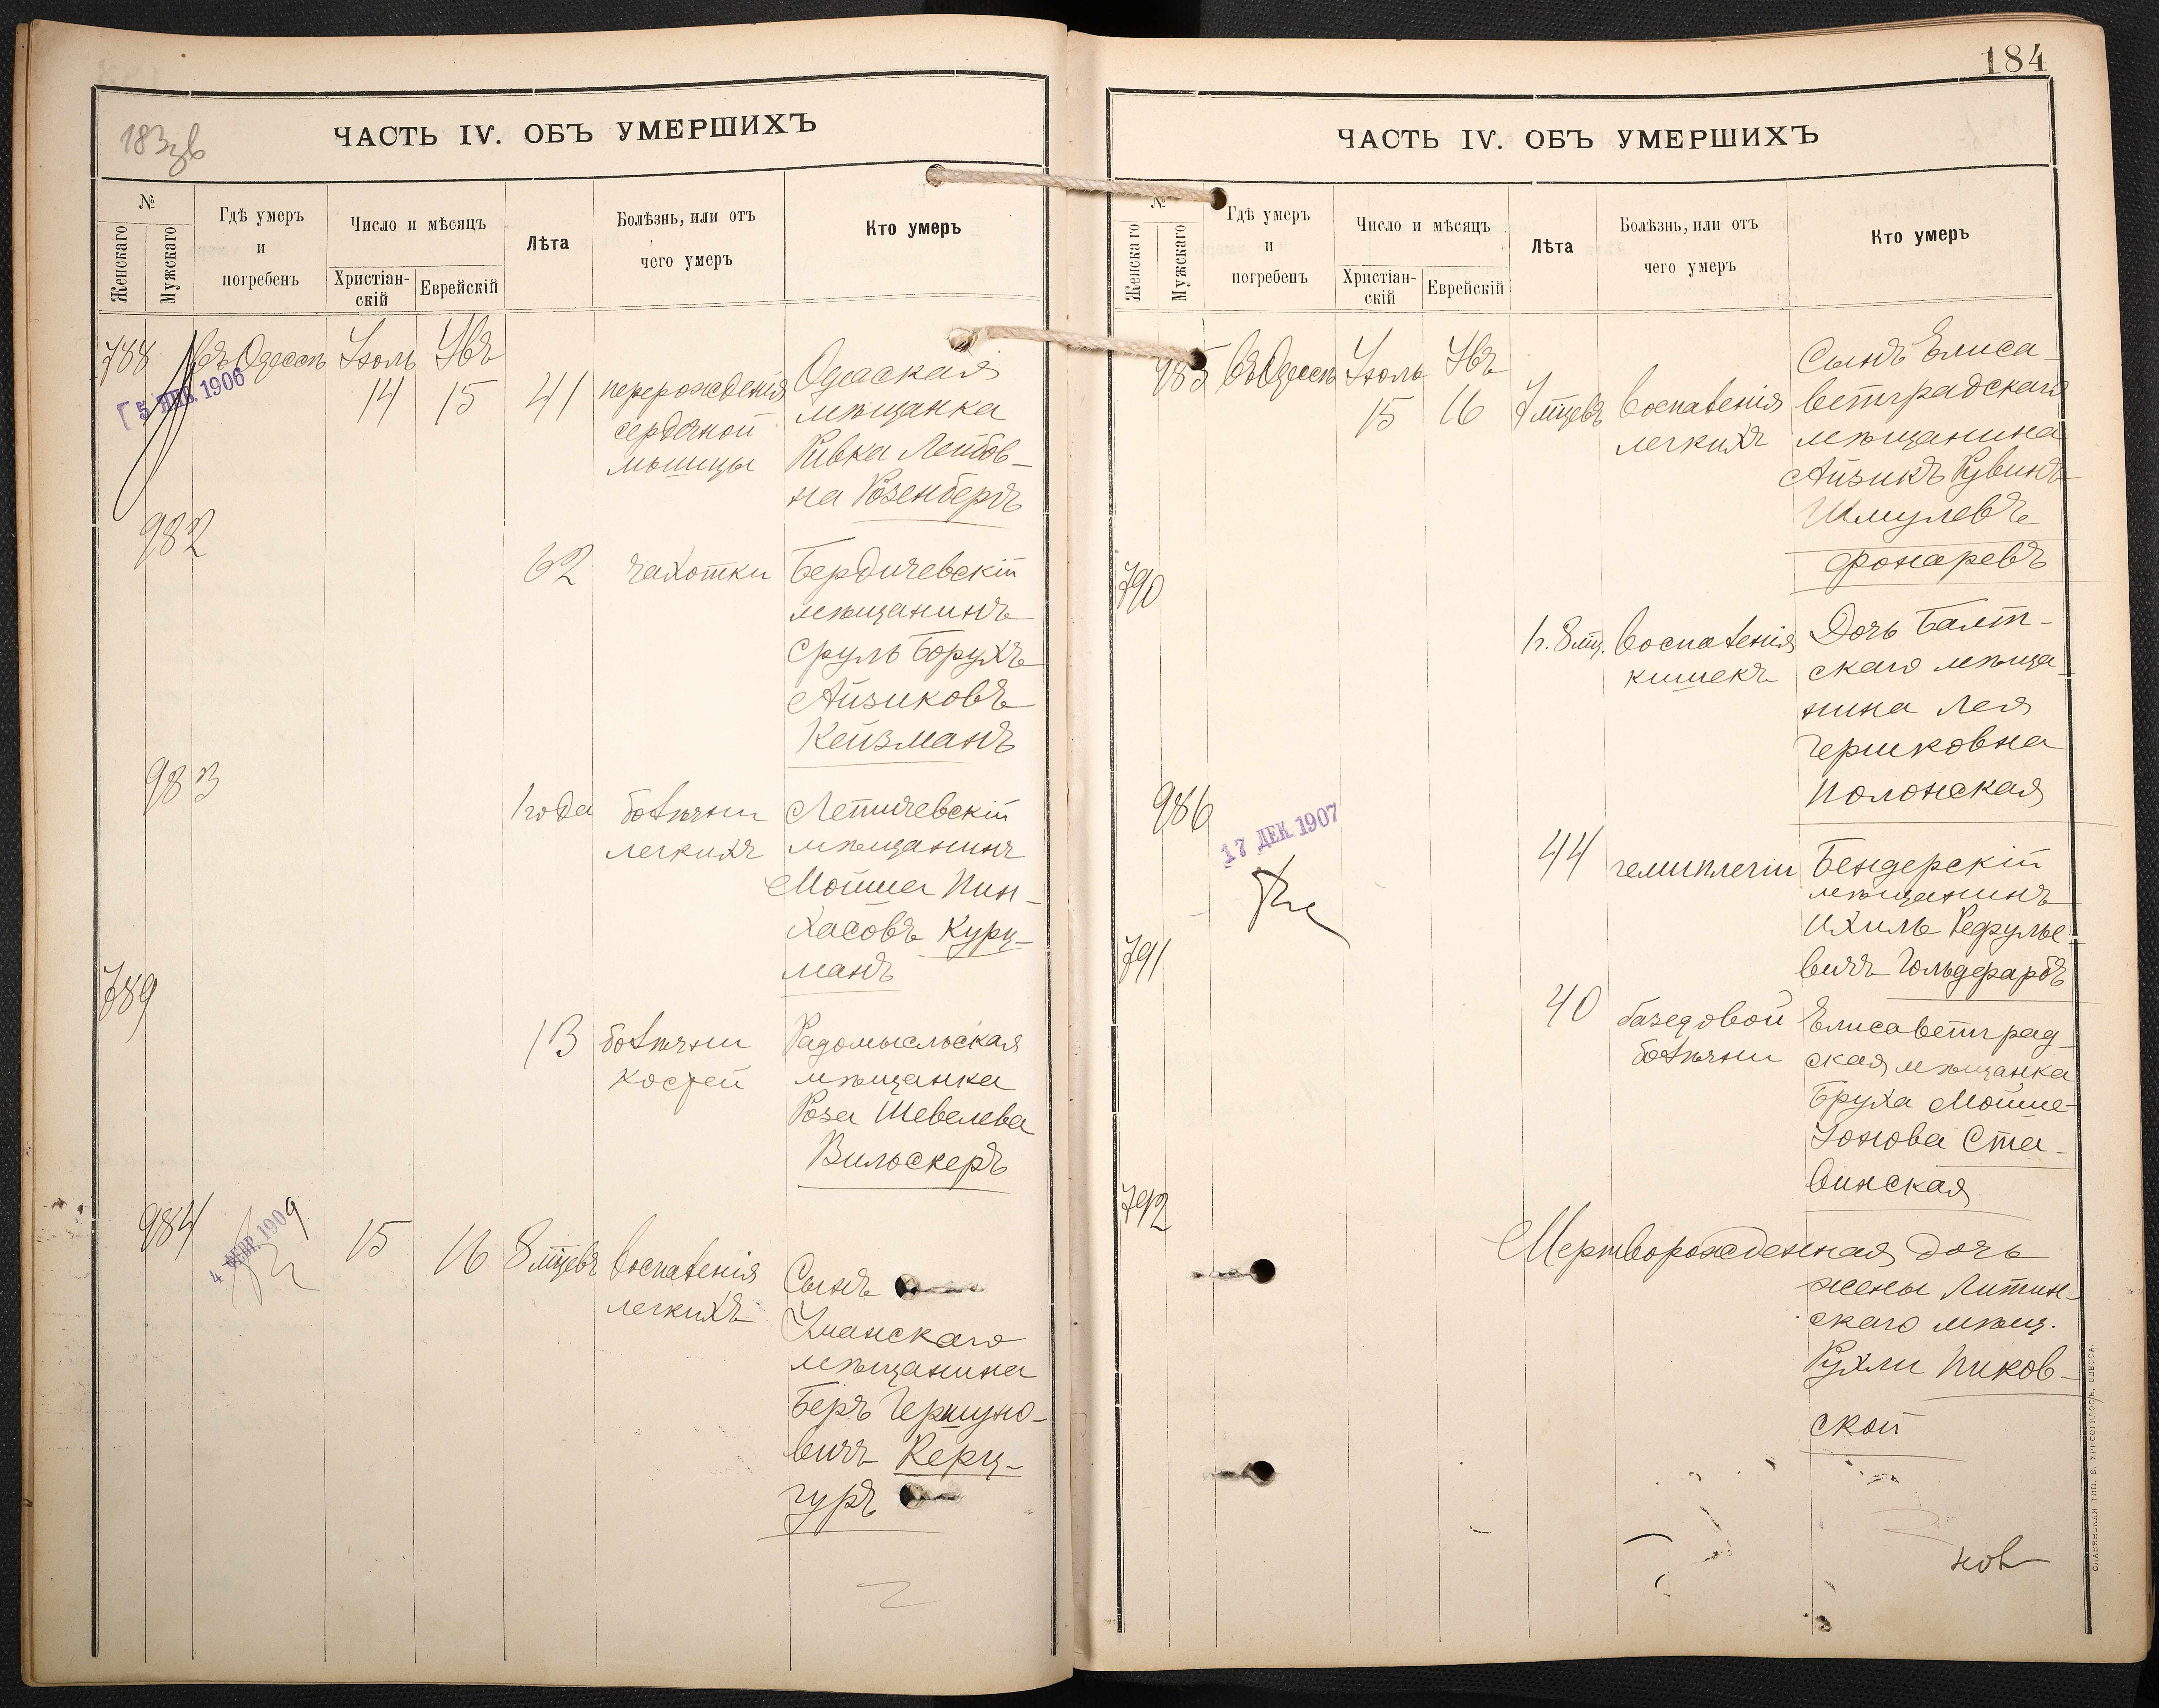 183зв
ЧАСТЬ IV. ОБЪ УМЕРШИХЪ
№
Женскаго
Мужскаго
Гдѣ умеръ
и
погребенъ
Число и мѣсяцъ
Христіан-
скій
Еврейскій
Лѣта
Болѣзнь, или отъ
чего умеръ
Кто умеръ
788
въ Одессѣ
Іюль
14
15
41
перерожденія
сердечной
мышцы
Одесская
мѣщанка
Ривка Лейбов-
на Розенбергъ
1906
982
62
чахотки
Бердичевскій
мѣщанинъ
Сруль Борухъ
Айзиковъ
Кейзманъ
983
1 года
болѣзни
легкихъ
Летичевскій
мѣщанинъ
Мойше Пин-
хасовъ Курц-
манъ
789
13
болѣзни
костей
Радомысльская
мѣщанка
Роза Шевелева
Вильскеръ
984
4 ФЕВР. 1909
15
16
8 мцевъ
воспаленія
легкихъ
Сынъ
Уманскаго
мѣщанина
Беръ Гершуно-
вичъ Керц-
гуръ
184
ЧАСТЬ IV. ОБЪ УМЕРШИХЪ
№
Женскаго
Мужскаго
Гдѣ умеръ
и
погребенъ
Число и мѣсяцъ
Христіан-
скій
Еврейскій
Лѣта
Болѣзнь, или отъ
чего умеръ
Кто умеръ
985
въ Одессѣ
Іюль
15
16
7 мцевъ
воспаленія
легкихъ
Сынъ Елиса-
ветградскаго
мѣщанина
Айзикъ Рувинъ
Шмулевъ
Фонаревъ
790
1 г. 8 мц.
воспаленія
кишекъ
Дочь Балт-
скаго мѣща-
нина Лея
Гершковна
Полонская
986
17 ДЕК. 1907
44
гемиплегіи
Бендерскій
мѣщанинъ
Ихиль Рефулье-
вичъ Гольдфарбъ
791
40
базедовой
болѣзни
Елисаветград-
ская мѣщанка
Бруха Мойше-
Іонова Ста-
винская
792
Мертворожденная дочь
жены Литин-
скаго мѣщ.
Рухли Пиков-
ской
СЛАВЯНСКАЯ ТИП. Е. ХРИСОГЕЛОСЪ, ОДЕССА.